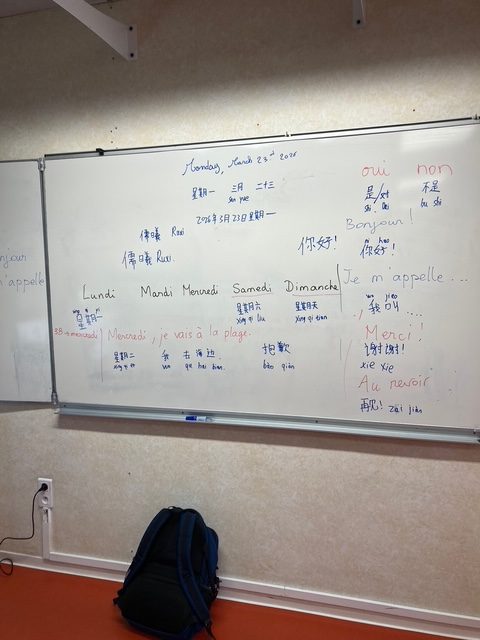 Monday, March 23rd 2026
星期一 三月 二十三
san yue
2026年3月23日星期一
儒曦 Ruxi
儒曦 Ruxi.
你好!
Lundi Mardi Mercredi Samedi Dimanche
星期六 星期天
xing qi liu xing qi tian
星期一
Mercredi, je vais à la plage.
星期二 我 去 海边. 抱歉
wo qu hai bian. bào qiàn
oui non
是/对 不是
bu shi
Bonjour!
ni hao
你好!
Je m'appelle ...
wo jiao
我 叫 ...
Merci!
谢谢!
xie xie
Au revoir
再见! zài jiàn
njour
m'appelle